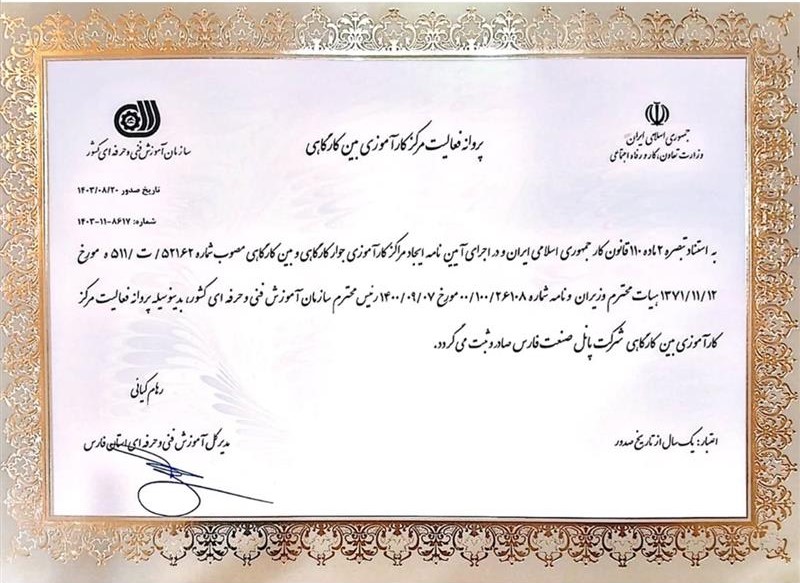 جمهوری اسلامی ایران
وزارت تعاون، کار و رفاه اجتماعی
پروانه فعالیت مرکز کارآموزی بین کارگاهی
سازمان آموزش فنی و حرفه ای کشور
تاریخ صدور ۱۴۰۳/۰۸/۲۰
شماره: ۸۶۱۷-۱۱-۱۴۰۳
به استناد تبصره ۲ ماده ۱۱۰ قانون کار جمهوری اسلامی ایران و در اجرای آیین نامه ایجاد مراکز کارآموزی جوار کارگاهی و بین کارگاهی مصوب شماره ۵۲۱۶۲/ت/۵۱۱ ه مورخ
۱۳۷۱/۱۱/۱۲ هیات محترم وزیران و نامه شماره ۰۰/۱۰۰/۲۶۱۰۸ مورخ ۱۴۰۰/۰۹/۰۷ رئیس محترم سازمان آموزش فنی و حرفه ای کشور، بدینوسیله پروانه فعالیت مرکز
کارآموزی بین کارگاهی شرکت پانل صنعت فارس صادر و ثبت می گردد.
رهام کیانی
مدیر کل آموزش فنی و حرفه ای استان فارس
اعتبار: یک سال از تاریخ صدور